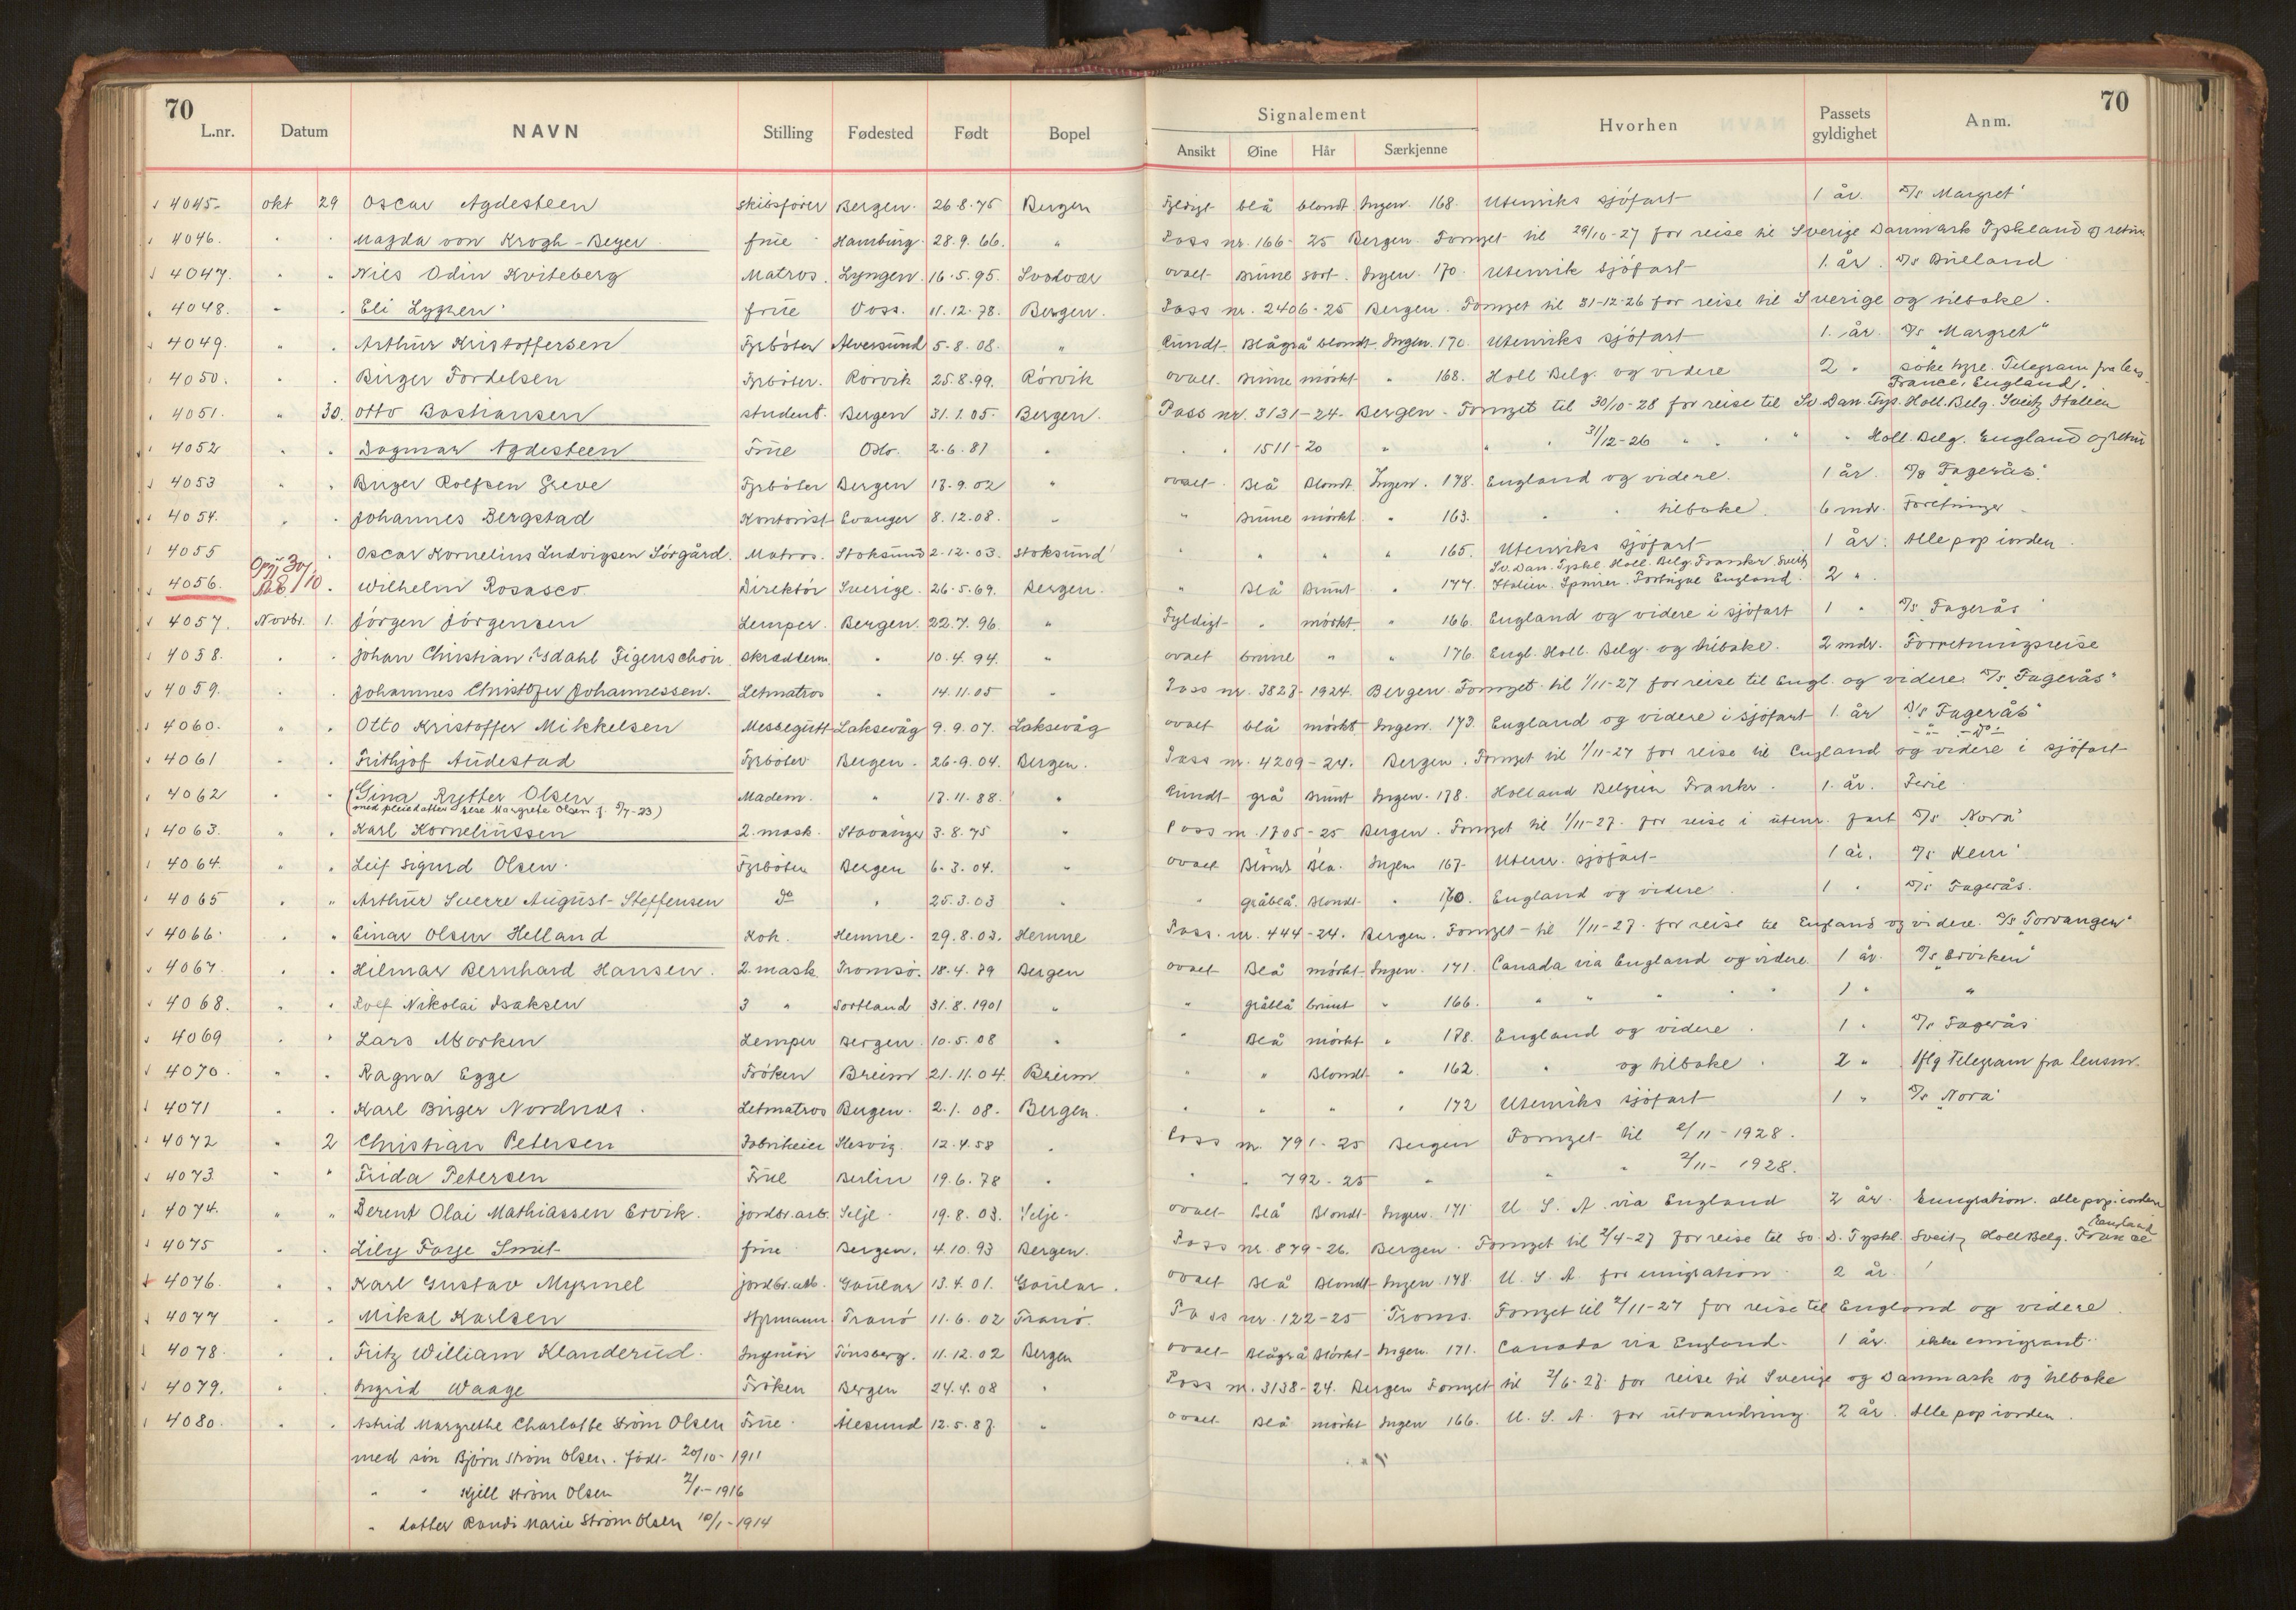 70
L.nr. Datum NAVN Stilling Fødested Født Bopel Signalement Ansikt Øine Hår Særkjenne Hvorhen Passets gyldighet Anm.
70
4045. okt 29 Oscar Agdesteen skibsfører Bergen. 26.8.75 Bergen Fyldigt blå blondt. Ingen. 168. Utenriks sjöfart 1 år. D/s Margret"
4046. " . Magda von Krogh-Beyer frue Hamburg. 28.9.66. " Pass nr. 166- 25 Bergen. Fornyet til 29/10-27 for reise til Sverige Danmark Tyskland og retur
4047. " . Nils Odin Kviteberg Matros. Lyngen. 16.5.95. Svolvær ovalt Brune sort. Ingen. 170. Utenrik sjöfart 1. år. D/s
4048. " . Eli frue Voss. 11.12.78. Bergen. Pass nr. 2406-25 Bergen. Fornyet til 31-12-26 for reise til Sverige og tilbake.
4049. " . Arthur Kristoffersen Fyrböter Alversund 5-8.08. " Rundt. Blågrå blondt. Ingen. 170 Utenriks sjöfart 1. år. D/s "Margret"
4050. " . Birger Fordelsen Fyrböter. Rörvik 25.8.99. Rörvik ovalt. Brune mörkt " 168. Holl Belg. og videre 2 " söke hyre. Telegram fra lens.
France, England.
4051. " 30. Otto Bastiansen student. Bergen 31.1.05. Bergen. Pass nr. 3131-24. Bergen. Fornyet til 30/10-28 for reise til Sv. Dan. Tys. Holl. Belg. Sveitz Italien
4052 " " Dagmar Agdesteen Frue Oslo. 2.6.81 " . . 1511-20 " " " 31/12-26 " . " " Holl. Belg. England og retur
4053 " " Birger Rolfsen Greve Fyrböter Bergen 13.9.02 " ovalt. Blå Blondt. Ingen. 178. England og videre. 1 år. D/s "Fagerås"
4054. " . Johannes Bergstad Kontorist Evanger 8.12.08. " " Brune mörkt. " 163. " " tilbake. 6 mdr. Foretninger
4055 . Oscar Kornelius Ludvigsen Sörgård. Matros. Stoksund 2.12.03. Stoksund " " " " 165. Utenriks sjöfart 1 år. Alle pap iorden.
Sv. Dan. Tyskl. Holl. Belg. Frankr. Sveitz
4056. 30/10. Wilhelm Rosasco Direktör Sverige. 26-5.69. Bergen. " Blå Brunt " 177. Italien. Spanien. Portugal England. 2 "
4057. Novbr. 1. Jörgen Jörgensen Lemper. Bergen. 22.7.96. " Fyldigt " mörkt. " 166. England og videre i sjöfart 1 " D/s "Fagerås"
4058. " . Johan Christian Isdahl Figenschou skrædderm. " 10.4.94. " ovalt brune " " 176. Engl. Holl. Belg. og tilbake. 2 mdr. Forretningsreise
4059. " . Johannes Christofer Johannessen. Letmatros " 14.11.05 " Pass nr. 3823-1924. Bergen. Fornyet til 1/11-27 for reise til Engl. og videre. D/s "Fagerås"
4060. " . Otto Kristoffer Mikkelsen Messegutt Laksevåg 9.9.07. Laksevåg ovalt blå mörkt Ingen. 173. England og videre i sjöfart 1. år D/s "Fagerås"
" " Do.
4061 " . Frithjof Audestad Fyrböter Bergen. 26-9.04. Bergen. Pass nr. 4209-24. Bergen. Fornyet til 1/11-27 for reise til England og videre i sjöfart
4062 " " Gina Rytter Olsen Madem. " 13.11.88. " Rundt grå Brunt Ingen. 178. Holland Belgien Frankr. 1. år. Ferie
(med pleiedatter Margrete Olsen f. 5/7-23)
4063. " . Karl Korneliussen 2. mask. Stavanger 3.8.75 " Pass nr. 1705-25 Bergen. Fornyet til 1/11-27. for reise i utenr. fart D/s "Nora"
4064. " . Leif Sigurd Olsen. Fyrböter Bergen 6.3.04. " ovalt Blondt Blå. Ingen 167. Utenr. sjöfart 1 år. D/s
4065 " " Arthur Sverre August Steffensen do " 25.3.03 " " gråblå. Blondt " 170. England og videre. 1 " D/s Fagerås.
4066. " " Einar Olsen Helland Kok. Hemne. 29.8.03. Hemne Pass. nr. 444-24. Bergen. Fornyet til 1/11-27. for reise til England og videre. D/s Torvangen"
4067. . . Hilmar Bernhard Hansen. 2. mask Tromsö. 18.4.79 Bergen ovalt Blå mörkt Ingen. 171. Canada via England og videre. 1 år. D/s "Erviken"
4068. " . Rolf Nikolai Isaksen 3 " Sortland 31.8.1901 " " gråblå brunt " 166. " " " " " 1 " "
4069 . " Lars Morken Lemper Bergen. 10.5.08 " " Blå mörkt " 178. England og videre. 1 " D/s Fagerås
4070. " . Ragna Egge Fröken Breim 21.11.04. Breim " " Blondt " 162. " og tilbake. 2 " iflg Telegram fra lensm.
4071 . . Karl Birger Nordnæs. Letmatros Bergen. 2.1.08. Bergen. " " " " 172 Utenriks sjöfart 1 " D/s "Nora"
4072 " 2 Christian Petersen Fabrikeier Slesvig. 12.4.58 " Pass nr. 791-25 Bergen Fornyet til 2/11-1928.
4073. " " Frida Petersen Frue Berlin 19.6.78 " " " 792-25 " " " 2/11-1928.
4074. " " Berent Olai Mathiassen Ervik. jordbr.arb. Selje. 19.8.03. Selje. ovalt Blå Blondt Ingen. 171 U.S.A. via England 2 år. Emigration. alle pap. iorden
England
4075 . . Lily Foye Smit frue Bergen. 4.10.93 Bergen. Pass nr. 879-26. Bergen. Fornyet til 2/4-27 for reise til Sv. D. Tyskl. Sveitz Holl Belg. France
4076. " . Karl Gustav Myrmel jordbr.arb. Gaular 13.4.01. Gaular. ovalt Blå Blondt Ingen. 178. U.S.A. for emigration. 2 år.
4077 . . Mikal Karlsen Styrmann Tranö 11.6.02 Tranö. Pass nr. 122-25 Troms. Fornyet til 2/11-27 for reise til England og videre.
4078. . . Fritz William Klanderud. Ingeniör Tönsberg. 11.12.02 Bergen ovalt Blågrå Mörkt Ingen. 171. Canada via England. 1 år. ikke emigrant.
4079. " . Ingrid Waage Fröken Bergen 24.4.08 " Pass nr. 3138-24. Bergen Fornyet til 2/6-28 for reise til Sverige og Danmark og tilbake
4080. " . Astrid Margrethe Charlotte Ström Olsen Frue. Ålesund 12.5.87. " ovalt Blå mörkt Ingen 166. U.S.A. for utvandring. 2 år. Alle pap iorden.
med sön Björn Ström Olsen. född. 20/10-1911
" " Kjell Ström Olsen 2/1-1916
" datter Randi Marie Ström Olsen 10/1-1914